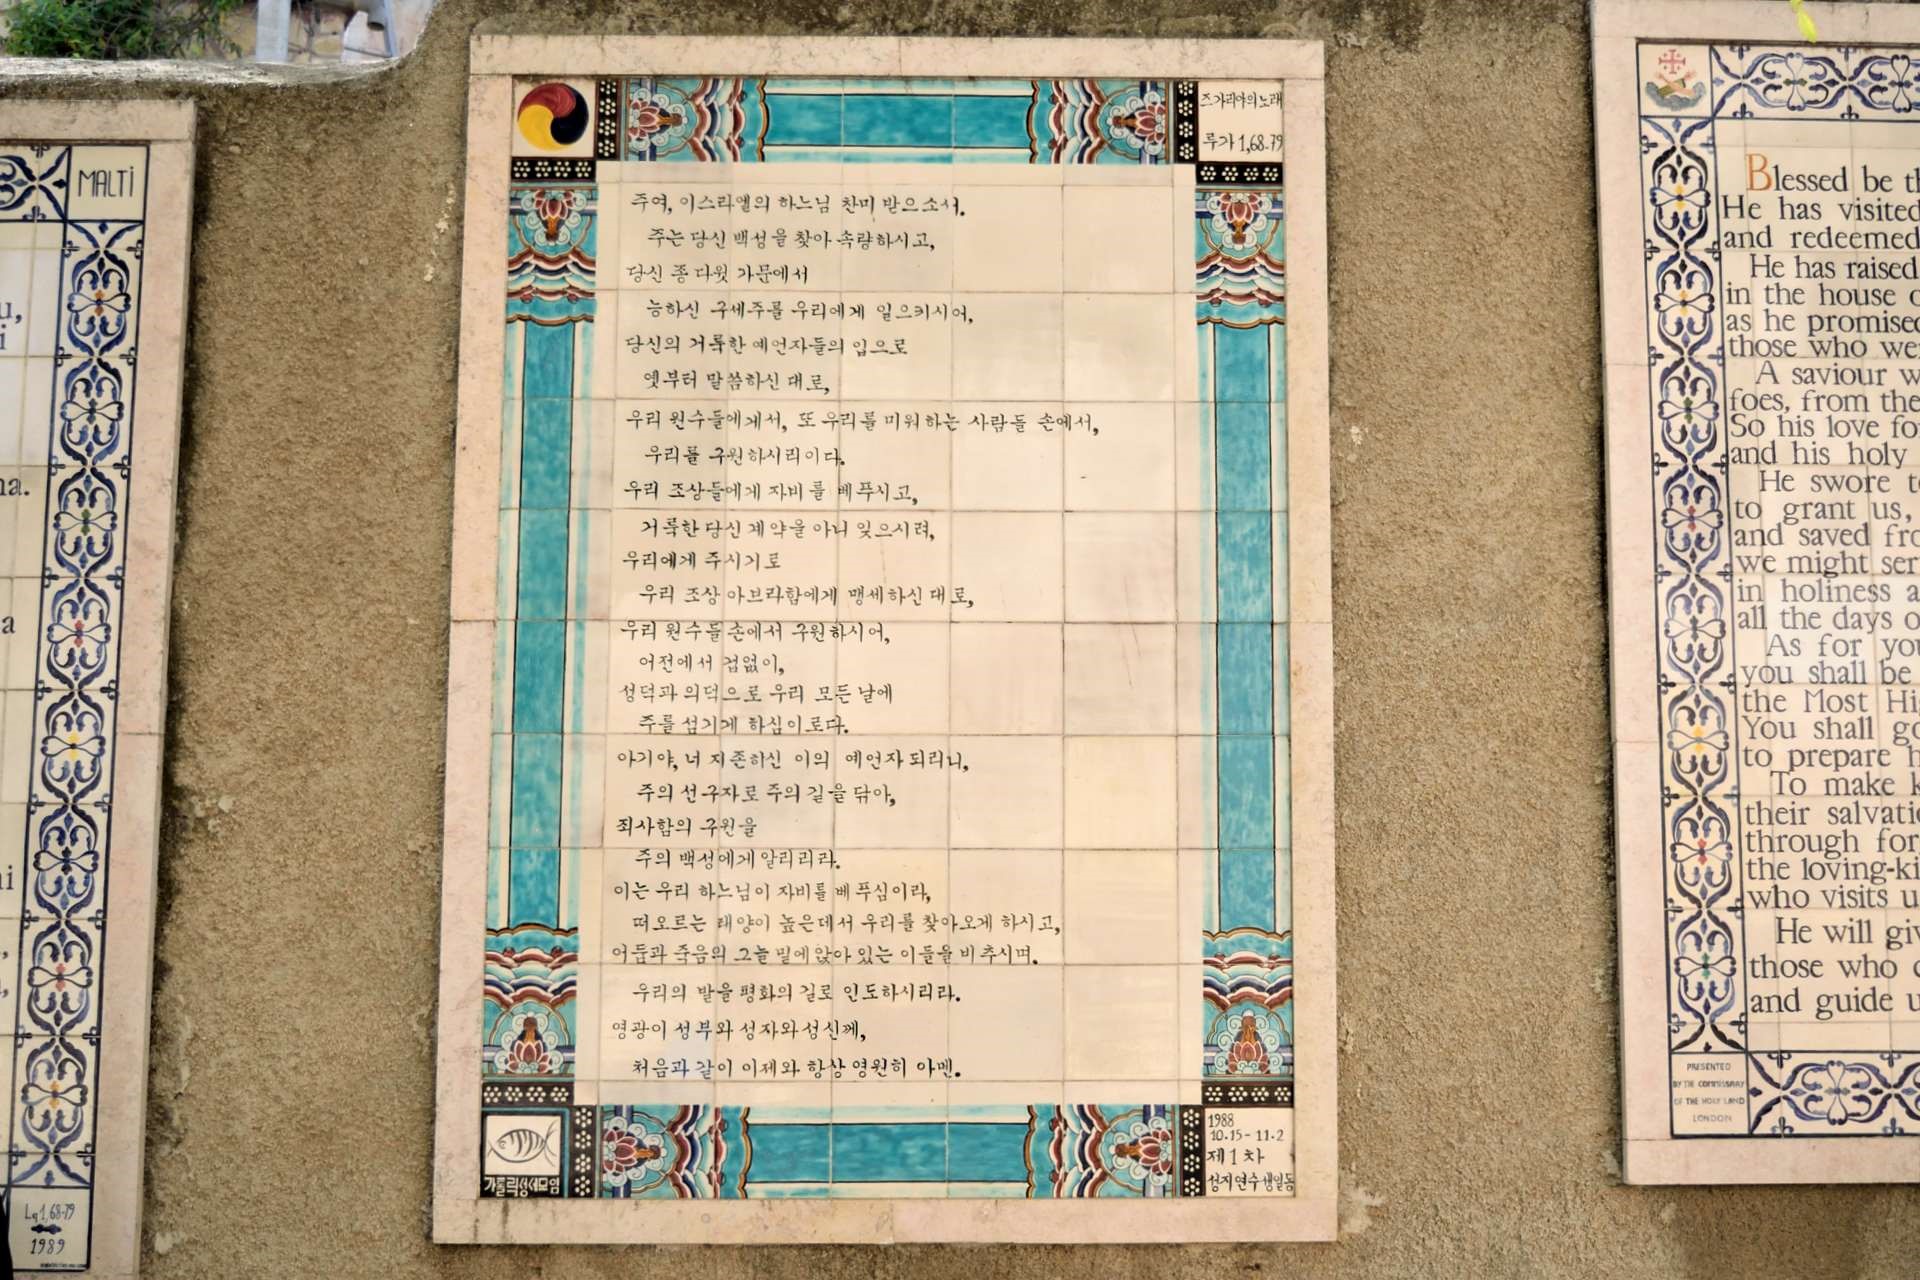 MALTI
u,
i
na.
a
ni
Lq 1,68-79
1989
즈가리야의 노래
루가 1,68-79
주여, 이스라엘의 하느님 찬미 받으소서.
주는 당신 백성을 찾아 속량하시고,
당신 종 다윗 가문에서
능하신 구세주를 우리에게 일으키시어,
당신의 거룩한 예언자들의 입으로
옛부터 말씀하신 대로,
우리 원수들에게서, 또 우리를 미워하는 사람들 손에서,
우리를 구원하시리이다.
우리 조상들에게 자비를 베푸시고,
거룩한 당신 계약을 아니 잊으시려,
우리에게 주시기로
우리 조상 아브라함에게 맹세하신 대로,
우리 원수들 손에서 구원하시어,
어전에서 겁없이,
성덕과 의덕으로 우리 모든 날에
주를 섬기게 하심이로다.
아기야, 너 지존하신 이의 예언자 되리니,
주의 선구자로 주의 길을 닦아,
죄사함의 구원을
주의 백성에게 알리리라.
이는 우리 하느님이 자비를 베푸심이라,
떠오르는 태양이 높은데서 우리를 찾아오게 하시고,
어둠과 죽음의 그늘 밑에 앉아 있는 이들을 비추시며.
우리의 발을 평화의 길로 인도하시리라.
영광이 성부와 성자와 성신께,
처음과 같이 이제와 항상 영원히 아멘.
가톨릭성서모임
1988
10.15-11.2
제1차
성지연수생일동
Blessed be th
He has visited
and redeemed
He has raised
in the house o
as he promised
those who wer
A saviour w
foes, from the
So his love fo
and his holy
He swore to
to grant us,
and saved fro
we might ser
in holiness a
all the days o
As for you
you shall be
the Most Hi
You shall go
to prepare h
To make k
their salvatio
through for
the loving-ki
who visits u
He will giv
those who d
and guide u
PRESENTED
BY THE COMMISSARY
OF THE HOLY LAND
LONDON